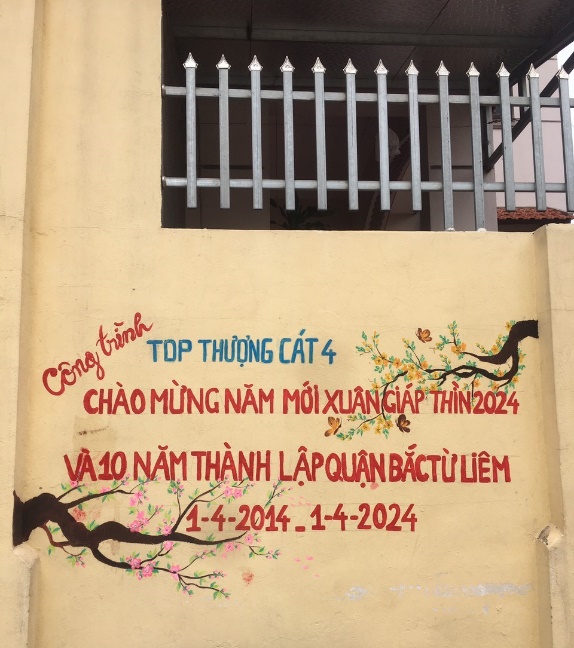 Công trình
TDP THƯỢNG CÁT 4
CHÀO MỪNG NĂM MỚI XUÂN GIÁP THÌN 2024
VÀ 10 NĂM THÀNH LẬP QUẬN BẮC TỪ LIÊM
1-4-2014_1-4-2024